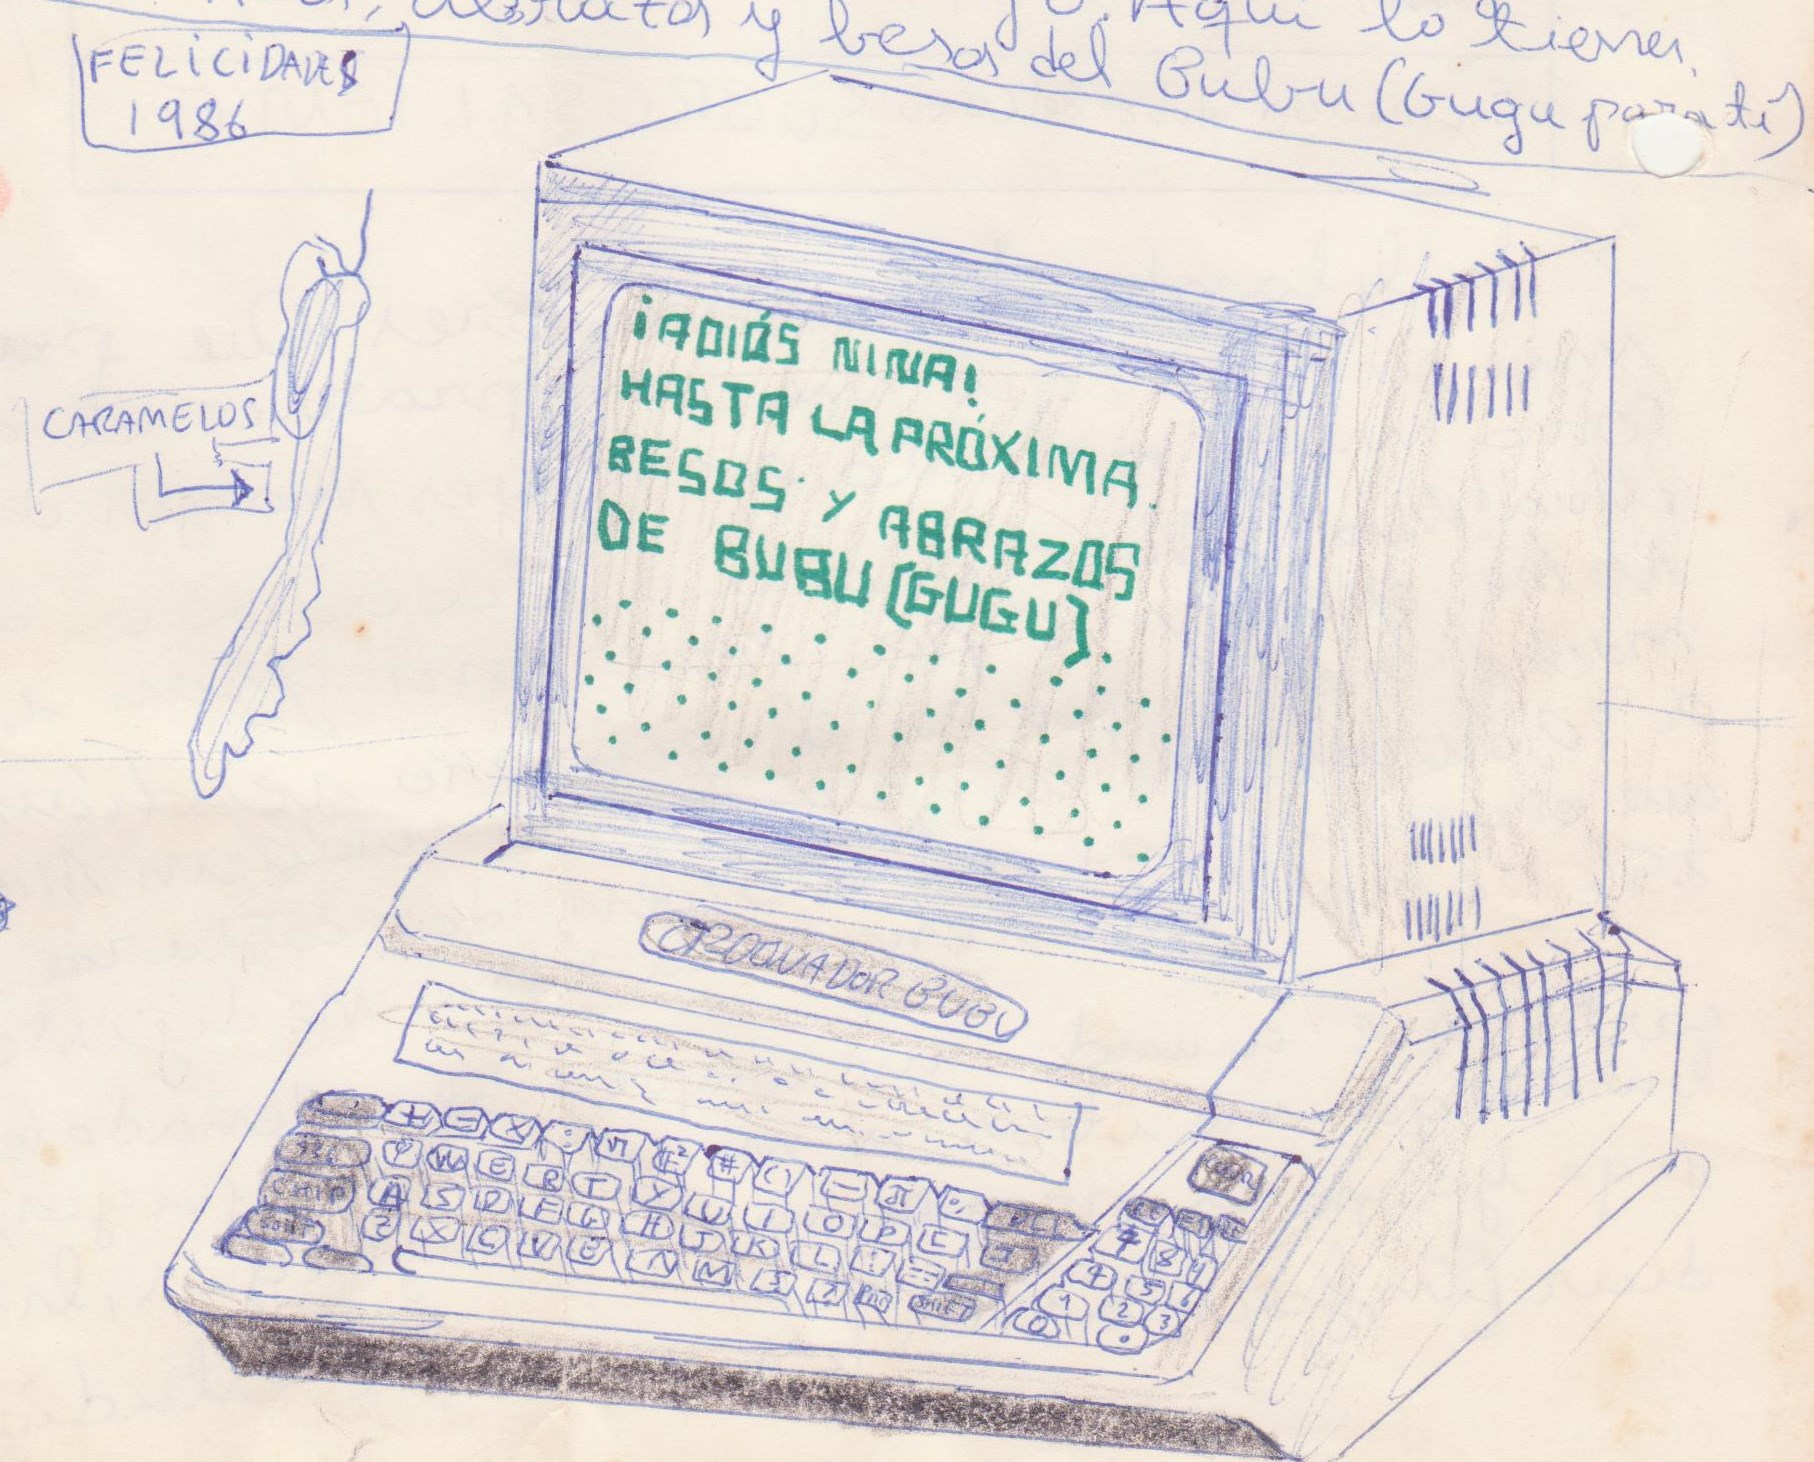 abrazos y besos Aquí lo tienes.
del Bubu (Gugu para ti)
FELICIDADES
1986
CARAMELOS
¡ADIÓS NINA!
HASTA LA PRÓXIMA.
BESOS Y ABRAZOS
DE BUBU (GUGU)
ORDENADOR BUBU
+ - X : # ( ) = π
Q W E R T Y U I O P
A S D F G H J K L
Z X C V B N M
SHIFT
7 8 9
4 5 6
1 2 3
0 .